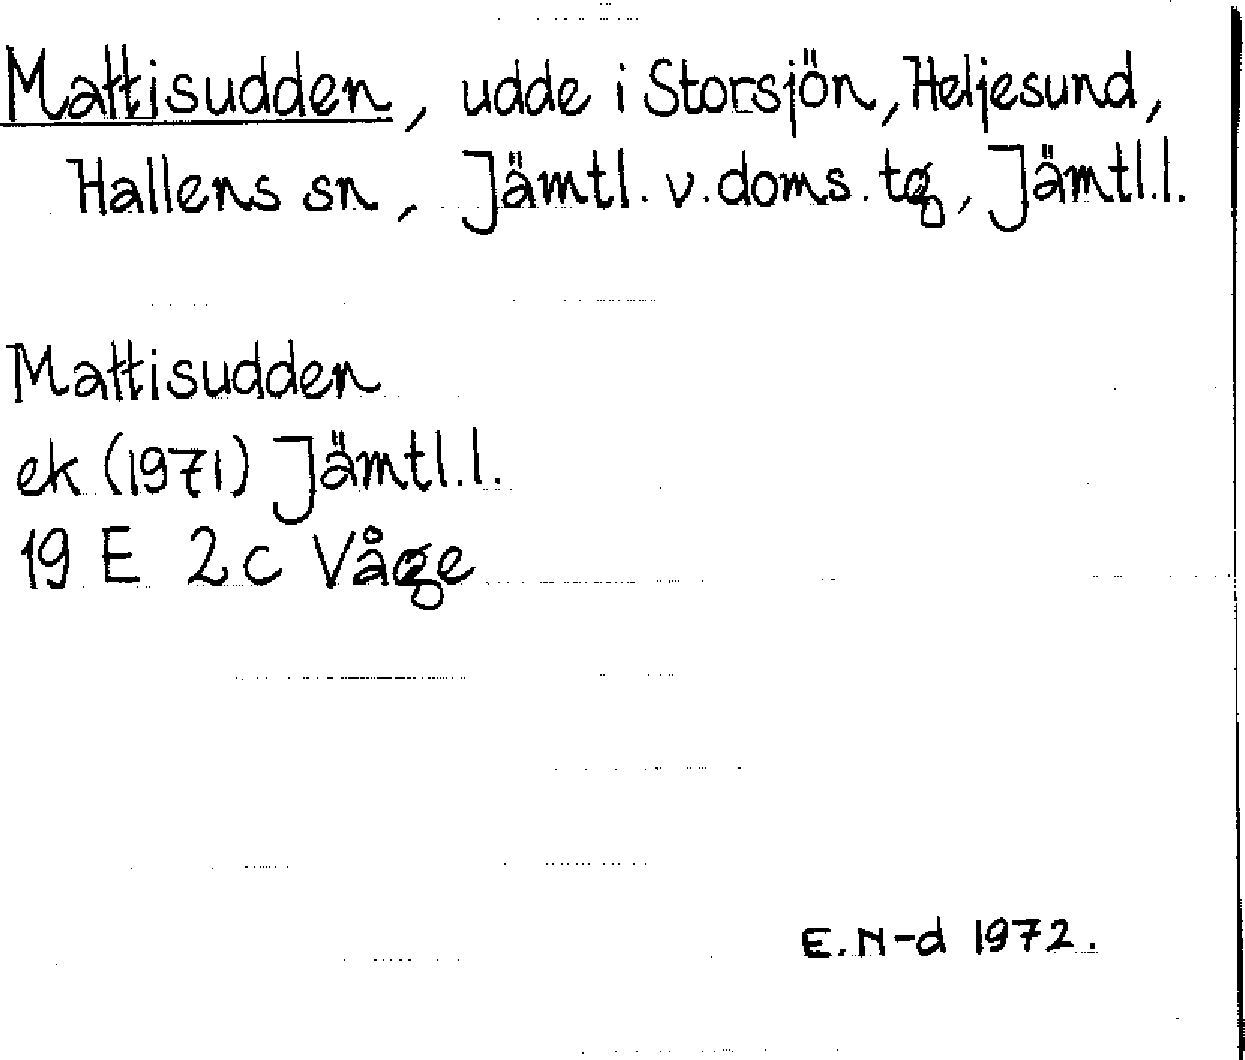 Mattisudden, udde i Storsjön, Heljesund,
Hallens sn, Jämtl. v. doms. tg, Jämtl.l.
Mattisudden
ek (1971) Jämtl.l.
19 E 2c Våge
E.N-d 1972.